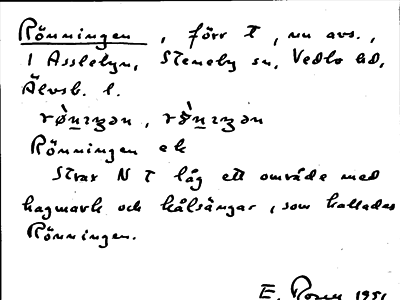 Rönningen, förr T, nu avs.,
i Asslebyn, Steneby sn, Vedbo hd,
Älvsb. l.
Rönningen ek
Strax N T låg ett område med
hagmark och hålsängar, som kallades
Rönningen.
E. Rosen 1951